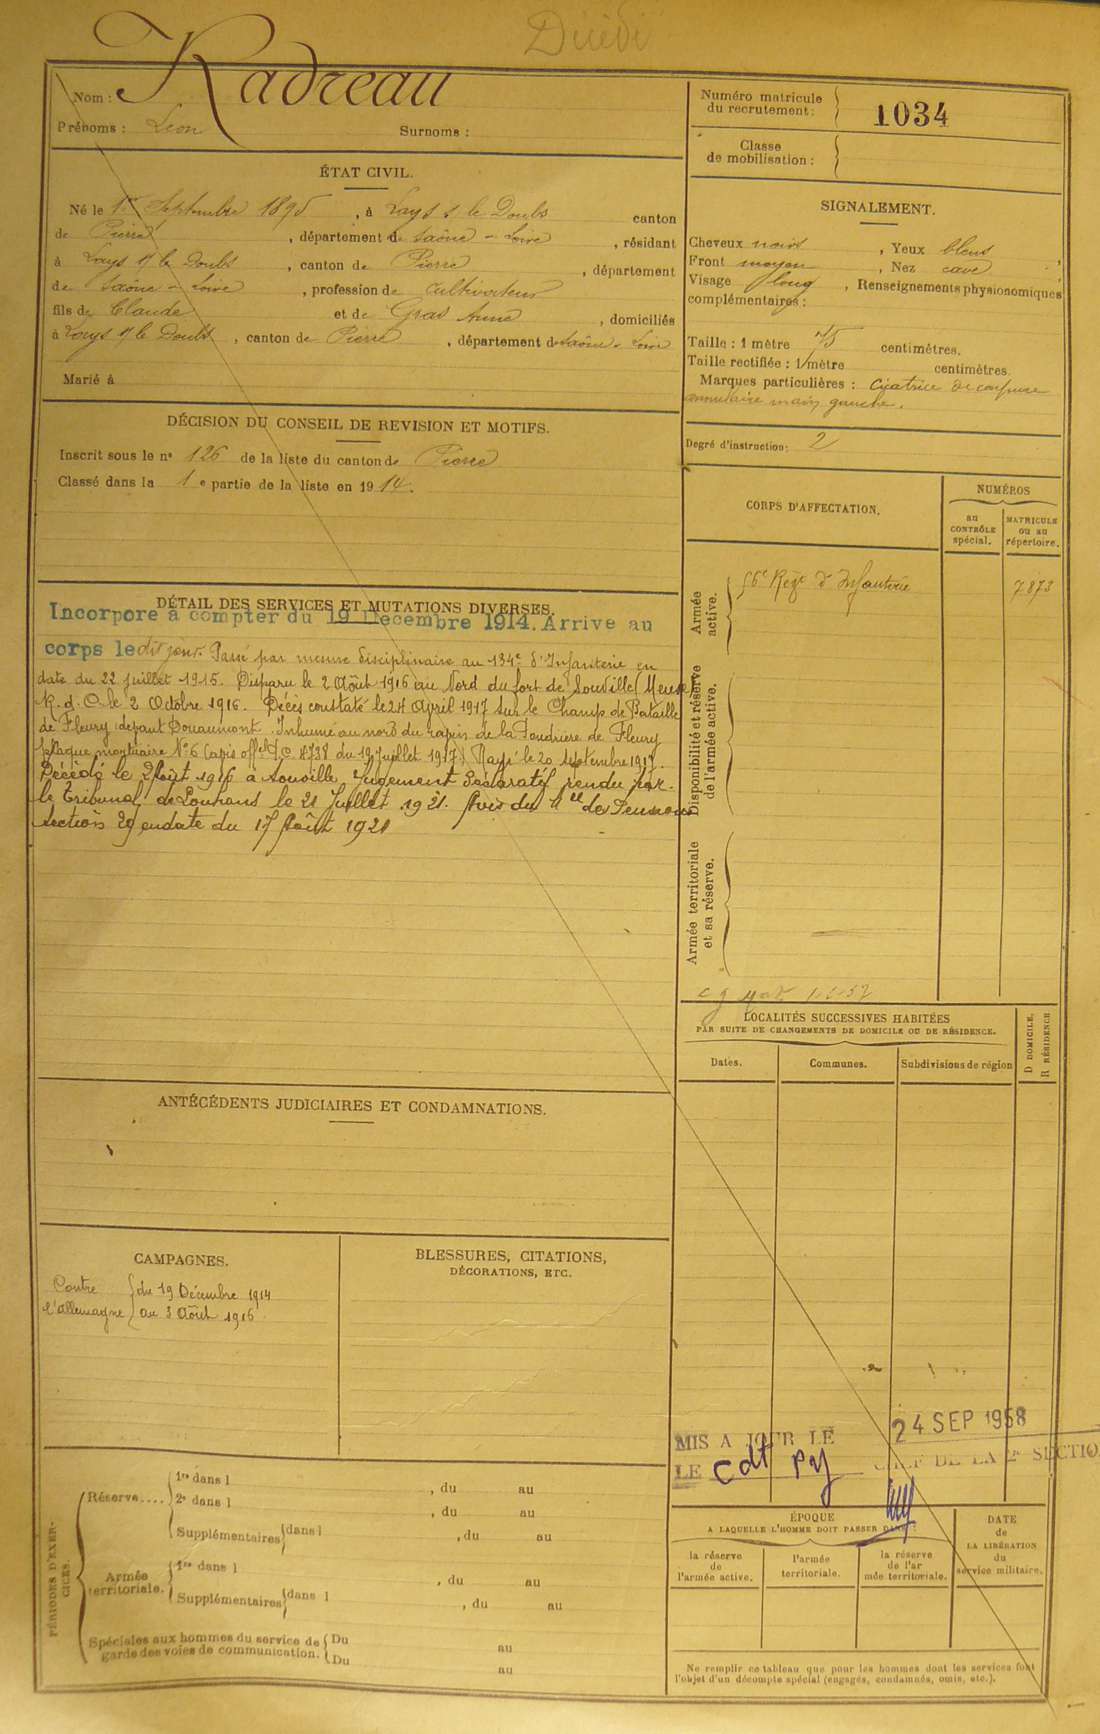 Décédé
Nom : Radreau
Prénoms : Léon Surnoms :
Numéro matricule du recrutement : 1034
Classe de mobilisation :
ÉTAT CIVIL.
Né le 1er Septembre 1895, à Lays s le Doubs canton
de Pierre, département de Saône-Loire, résidant
à Lays s/ le Doubs, canton de Pierre, département
de Saône-Loire, profession de cultivateur
fils de Claude et de Gras Anne, domiciliés
à Lays s/ le Doubs, canton de Pierre, département de Saône-Loire
Marié à
SIGNALEMENT.
Cheveux noirs, Yeux bleus,
Front moyen, Nez cave
Visage long, Renseignements physionomiques
complémentaires :
Taille : 1 mètre 75 centimètres.
Taille rectifiée : 1 mètre centimètres.
Marques particulières : Cicatrice de coupure
annulaire main gauche.
Degré d'instruction : 2
DÉCISION DU CONSEIL DE REVISION ET MOTIFS.
Inscrit sous le n° 126 de la liste du canton de Pierre
Classé dans la 1e partie de la liste en 1914.
DÉTAIL DES SERVICES ET MUTATIONS DIVERSES.
Incorporé à compter du 19 Decembre 1914. Arrive au
corps le dit jour. Passé par mesure disciplinaire au 134e d'Infanterie en
date du 22 juillet 1915. Disparu le 2 Août 1916 au Nord du fort de Souville (Meuse)
R.d.C. le 2 Octobre 1916. Décès constaté le 24 April 1917 sur le Champ de Bataille
de Fleury devant Douaumont. Inhumé au nord du ravin de la Poudrière de Fleury
plaque mortuaire N° 6 (avis offel J.C. 8738 du 19 juillet 1917) Rayé le 20 septembre 1917.
Décédé le 2 Août 1916 à Souville, Jugement Déclaratif rendu par
le Tribunal de Louhans le 21 Juillet 1921. Avis du Mle de Pensions
Section 29 en date du 17 Août 1921
CORPS D'AFFECTATION.
NUMÉROS
au CONTRÔLE spécial.
MATRICULE ou au répertoire.
Armée active.
56e Régt d'Infanterie 7873
Disponibilité et réserve de l'armée active.
Armée territoriale et sa réserve.
LOCALITÉS SUCCESSIVES HABITÉES
PAR SUITE DE CHANGEMENTS DE DOMICILE OU DE RÉSIDENCE.
Dates.
Communes.
Subdivisions de région
D DOMICILE.
R RÉSIDENCE
ANTÉCÉDENTS JUDICIAIRES ET CONDAMNATIONS.
CAMPAGNES.
Contre l'Allemagne { du 19 Décembre 1914
au 3 Août 1916.
BLESSURES, CITATIONS,
DÉCORATIONS, ETC.
MIS A JOUR LE 24 SEP 1958
LE CHEF DE LA 2e SECTION
PÉRIODES D'EXERCICES.
Réserve.... 1re dans l, du au
2e dans l, du au
Supplémentaires dans l, du au
Armée territoriale. 1re dans l, du au
Supplémentaires dans l, du au
Spéciales aux hommes du service de garde des voies de communication. Du au
Du au
ÉPOQUE
A LAQUELLE L'HOMME DOIT PASSER DANS :
la réserve de l'armée active.
l'armée territoriale.
la réserve de l'armée territoriale.
DATE
de
LA LIBÉRATION
du
service militaire.
Ne remplir ce tableau que pour les hommes dont les services font
l'objet d'un décompte spécial (engagés, condamnés, omis, etc.).